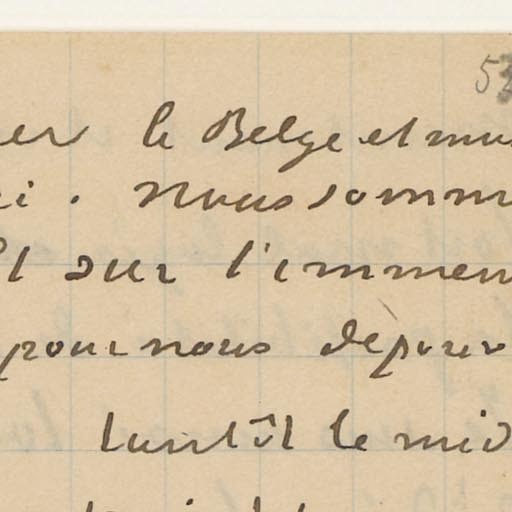 52
er le Belge et mu
i. Nous somm
t sur l'immen
pour nous dépour
tantôt le mid